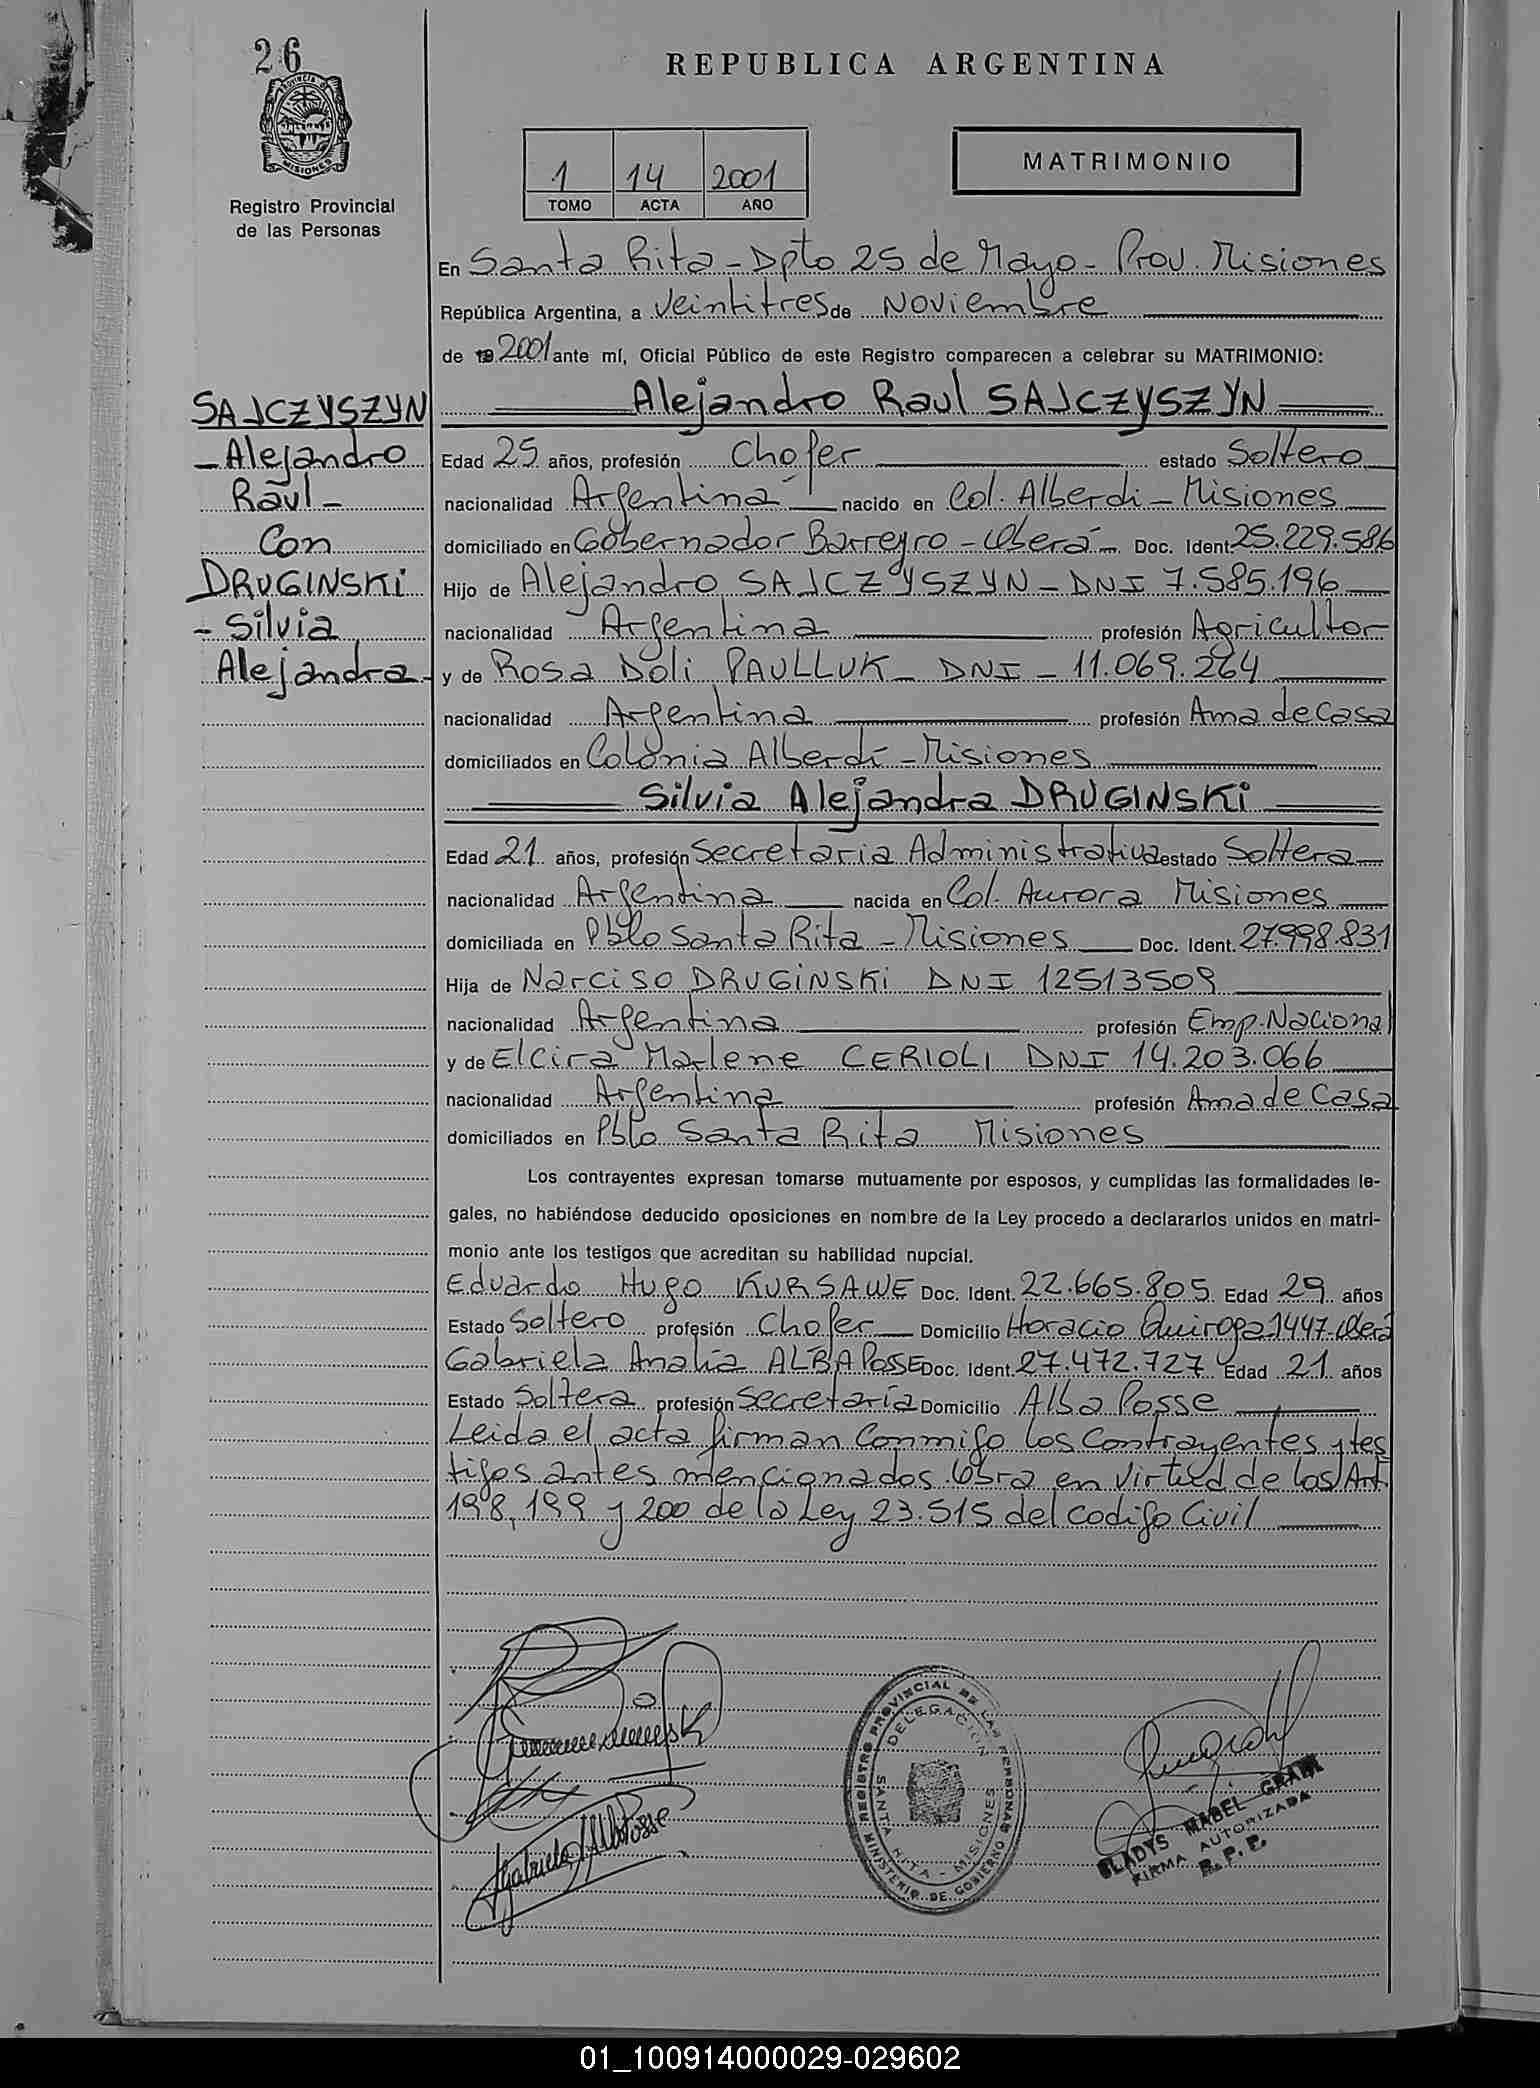 26
PROVINCIA DE
MISIONES
Registro Provincial
de las Personas
REPUBLICA ARGENTINA
1 14 2001
TOMO ACTA AÑO
MATRIMONIO
En Santa Rita - Dpto 25 de Mayo - Prov. Misiones
República Argentina, a Veintitres de Noviembre
de 2001 ante mí, Oficial Público de este Registro comparecen a celebrar su MATRIMONIO:
SAJCZYSZYN
- Alejandro
Raul -
Con
DRUGINSKI
- Silvia
Alejandra -
Alejandro Raul SAJCZYSZYN
Edad 25 años, profesión Chofer estado Soltero
nacionalidad Argentina nacido en Col. Alberdi - Misiones
domiciliado en Gobernador Barreyro - Oberá - Doc. Ident. 25.229.586
Hijo de Alejandro SAJCZYSZYN - DNI 7.585.196
nacionalidad Argentina profesión Agricultor
y de Rosa Doli PAULLUK - DNI - 11.069.264
nacionalidad Argentina profesión Ama de Casa
domiciliados en Colonia Alberdi - Misiones
Silvia Alejandra DRUGINSKI
Edad 21 años, profesión Secretaria Administrativa estado Soltera
nacionalidad Argentina nacida en Col. Aurora Misiones
domiciliada en Pblo Santa Rita - Misiones Doc. Ident. 27.998.831
Hija de Narciso DRUGINSKI DNI 12513509
nacionalidad Argentina profesión Emp. Nacional
y de Elcira Marlene CERIOLI DNI 14.203.066
nacionalidad Argentina profesión Ama de Casa
domiciliados en Pblo Santa Rita Misiones
Los contrayentes expresan tomarse mutuamente por esposos, y cumplidas las formalidades le-
gales, no habiéndose deducido oposiciones en nombre de la Ley procedo a declararlos unidos en matri-
monio ante los testigos que acreditan su habilidad nupcial.
Eduardo Hugo KURSAWE Doc. Ident. 22.665.805 Edad 29 años
Estado Soltero profesión Chofer Domicilio Horacio Quiroga 1447 Oberá
Gabriela Analia ALBA POSSE Doc. Ident. 27.472.727 Edad 21 años
Estado Soltera profesión Secretaria Domicilio Alba Posse
Leida el acta firman Conmigo los Contrayentes y tes
tigos antes mencionados. Obra en virtud de los Art.
198, 199 y 200 de la Ley 23.515 del Codigo Civil
Gabriela Alba Posse
REGISTRO PROVINCIAL DE LAS PERSONAS
MINISTERIO DE GOBIERNO
DELEGACION
SANTA RITA - MISIONES
GLADYS MABEL
FIRMA AUTORIZADA
R. P. P.
01_100914000029-029602